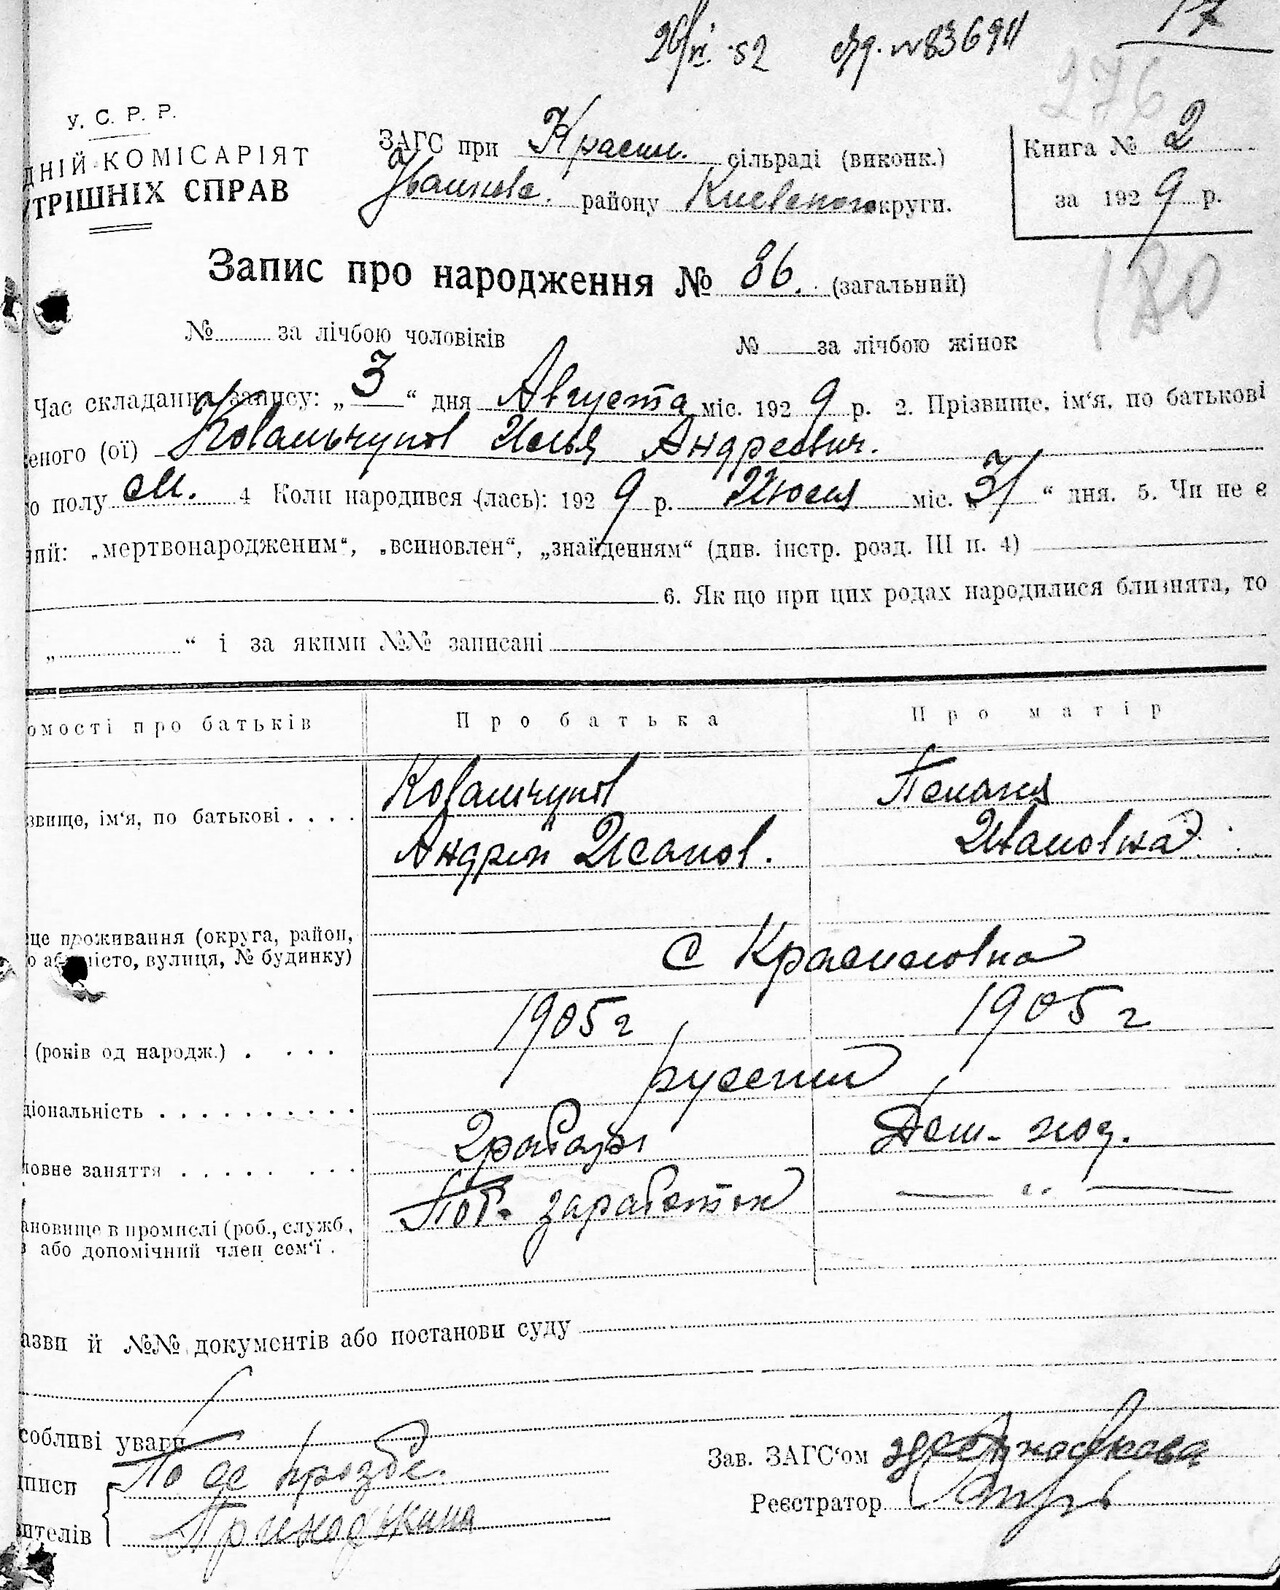 17
52 № 836911
276
У. С. Р. Р.
ДНІЙ КОМІСАРІЯТ
ТРІШНІХ СПРАВ
ЗАГС при Красил. сільраді (виконк.)
району округи.
Книга № 2
за 1929 р.
Запис про народження № 86. (загальний)
180
№ за лічбою чоловіків № за лічбою жінок
Час складання запису: „3“ дня Августа міс. 1929 р. 2. Прізвище, ім'я, по батькові
еного (ої) Ковальчуков Илья Андреевич.
о полу М. 4 Коли народився (лась): 1929 р. Июля міс. „31“ дня. 5. Чи не є
ий: „мертвонародженим“, „всиновлен“, „знайденням“ (див. інстр. розд. III п. 4)
6. Як що при цих родах народилися близнята, то
„ “ і за якими №№ записані
омості про батьків Про батька Про матір
Ковальчуков Пелагия
звище, ім'я, по батькові . . . .
Андрей Исаков. Ивановна
це проживання (округа, район,
о або місто, вулиця, № будинку) с Красиловка
(років од народж.) . . . . 1905 г 1905 г
ціональність . . . . . . . . . . русский
овне заняття . . . . . . . . Грабарь Дом. хоз.
ановище в промислі (роб., служб., заработок — „ —
або допомічний член сем'ї .
азви й №№ документів або постанови суду
собливі уваги
дписи
ителів
Зав. ЗАГС'ом
Реєстратор